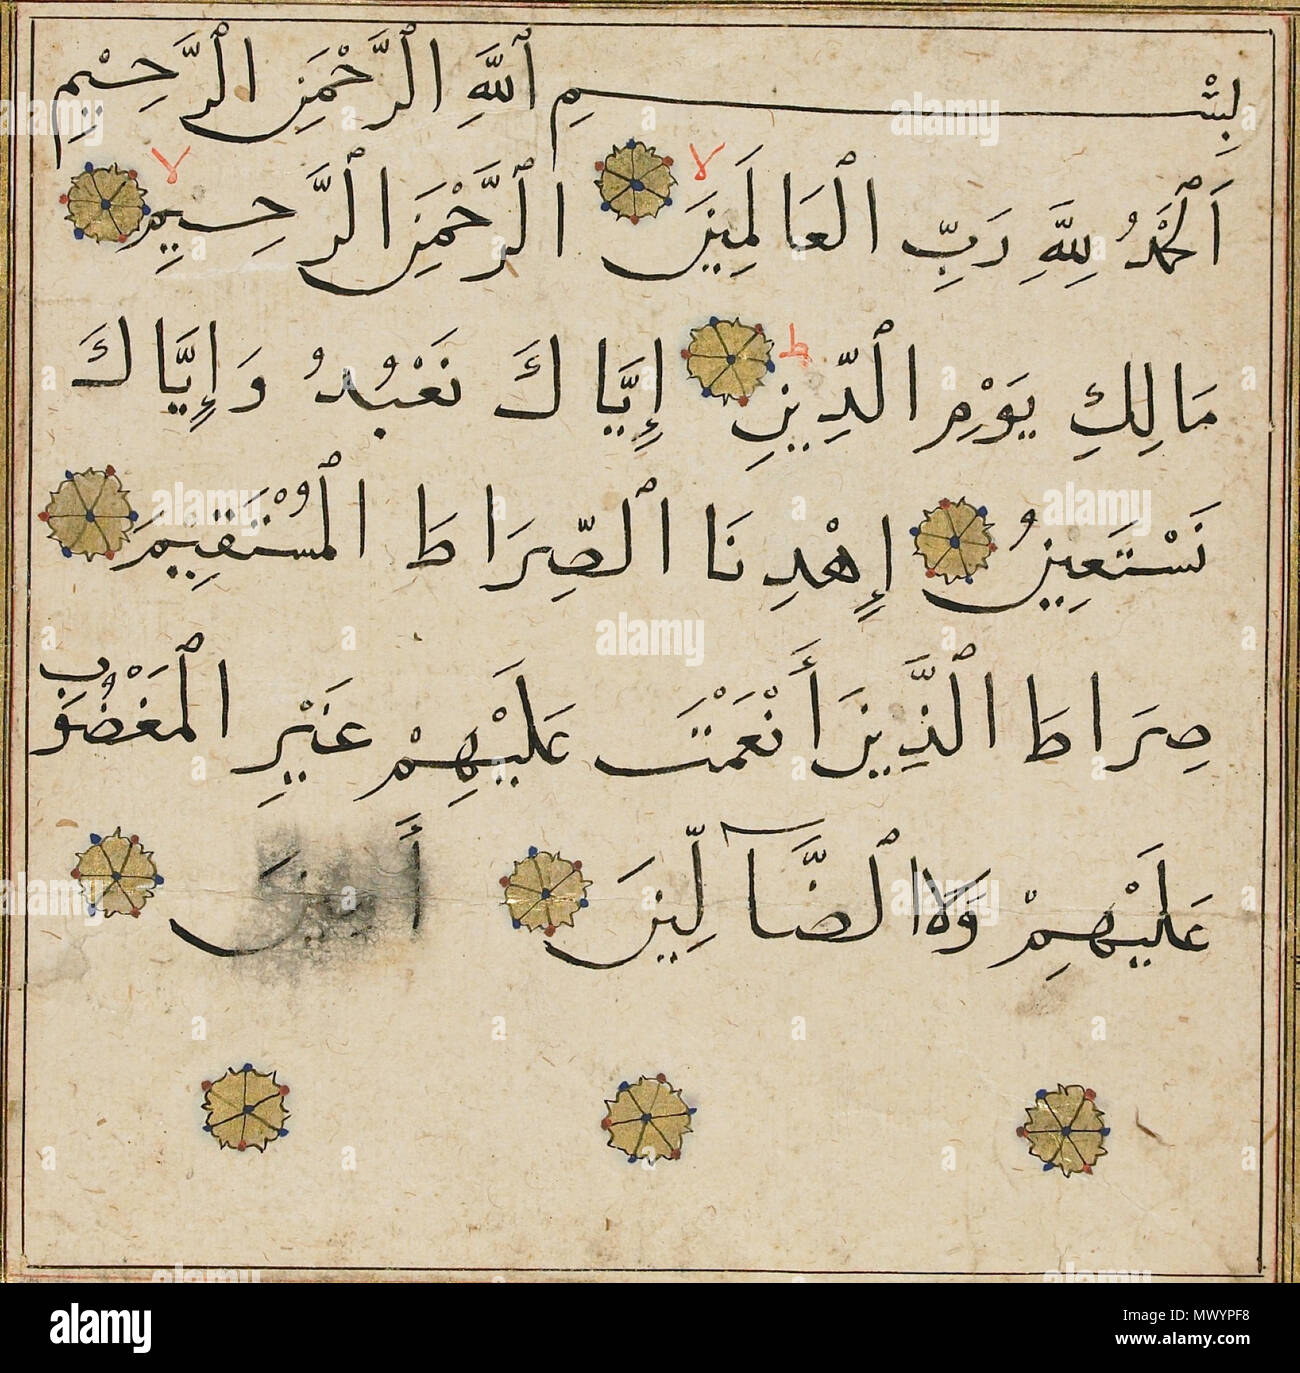 بِسْمِ ٱللَّهِ ٱلرَّحْمَٰنِ ٱلرَّحِيْمِ
اَلْحَمْدُ لِلَّهِ رَبِّ ٱلْعَالَمِينَ لا ٱلرَّحْمَٰنِ ٱلرَّحِيمِ لا
مَالِكِ يَوْمِ ٱلدِّينِ ط إِيَّاكَ نَعْبُدُ وَإِيَّاكَ
نَسْتَعِينُ إِهْدِنَا ٱلصِّرَاطَ ٱلْمُسْتَقِيمَ
صِرَاطَ ٱلَّذِينَ أَنْعَمْتَ عَلَيْهِمْ غَيْرِ ٱلْمَغْضُوبِ
عَلَيْهِمْ وَلَا ٱلضَّآلِّينَ أَمِينَ
alamy
Image ID: MWYPF8
www.alamy.com